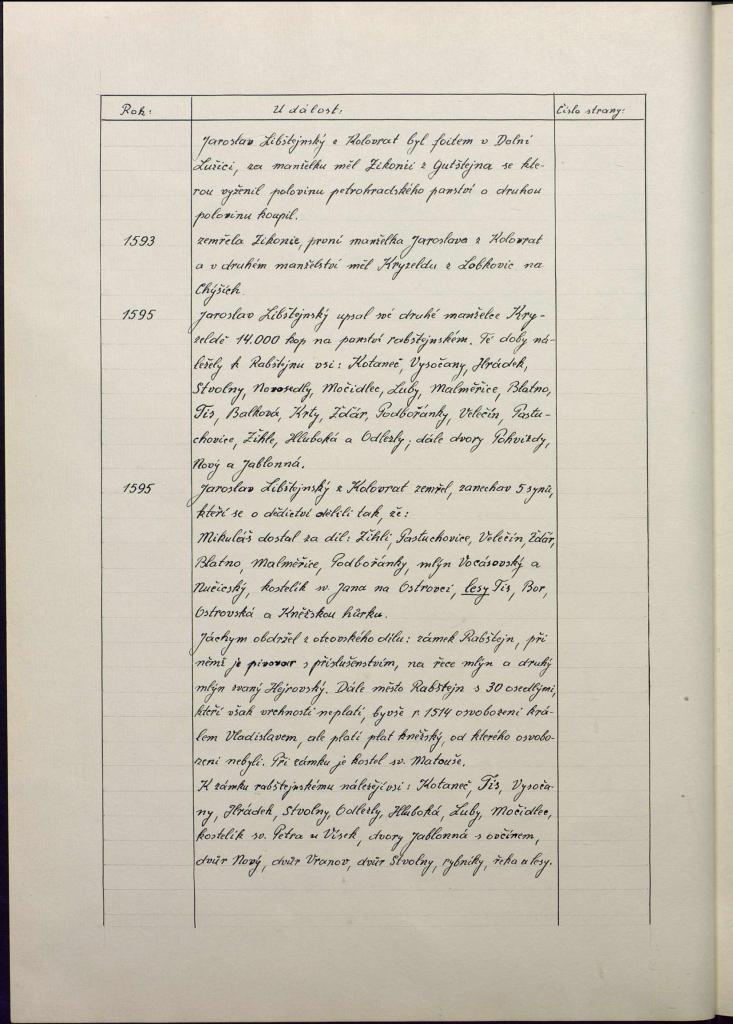 Rok: Událost: Číslo strany:
Jaroslav Libštejnský z Kolovrat byl foitem v Dolní
Lužici, za manželku měl Zikonii z Gutštejna se kte-
rou vyženil polovinu petrohradského panství a druhou
polovinu koupil.
1593 zemřela Zikonie, první manželka Jaroslava z Kolovrat
a v druhém manželství měl Kryzeldu z Lobkovic na
Chýších.
1595 Jaroslav Libštejnský upsal své druhé manželce Kry-
zeldě 14.000 kop na panství rabštejnském. Té doby ná-
ležely k Rabštejnu vsi: Kotaneč, Vysočany, Hrádek,
Stvolny, Novosedly, Močidlec, Luby, Malměřice, Blatno,
Tis, Balková, Krty, Ždár, Podbořánky, Velečín, Pastu-
chovice, Žihle, Hluboká a Odlezly; dále dvory Pohvizdy,
Nový a Jablonná.
1595 Jaroslav Libštejnský z Kolovrat zemřel, zanechav 5 synů,
kteří se o dědictví dělili tak, že:
Mikuláš dostal za díl: Žihli, Pastuchovice, Velečín, Ždár,
Blatno, Malměřice, Podbořánky, mlýn Vocásovský a
Nučický, kostelík sv. Jana na Ostrovci, lesy Tis, Bor,
Ostrovská a Kněžskou hůrku.
Jáchym obdržel z otcovského dílu: zámek Rabštejn, při
němž je pivovar s příslušenstvím, na řece mlýn a druhý
mlýn zvaný Hejrovský. Dále město Rabštejn s 30 osedlými,
kteří však vrchnosti neplatí, byvše r. 1514 osvobozeni krá-
lem Vladislavem, ale platí plat kněžský, od kterého osvobo-
zeni nebyli. Při zámku je kostel sv. Matouše.
K zámku rabštejnskému náležejí vsi: Kotaneč, Tis, Vysoča-
ny, Hrádek, Stvolny, Odlezly, Hluboká, Luby, Močidlec,
kostelík sv. Petra u Vísek, dvory Jablonná s ovčínem,
dvůr Nový, dvůr Vranov, dvůr Stvolny, rybníky, řeka a lesy.